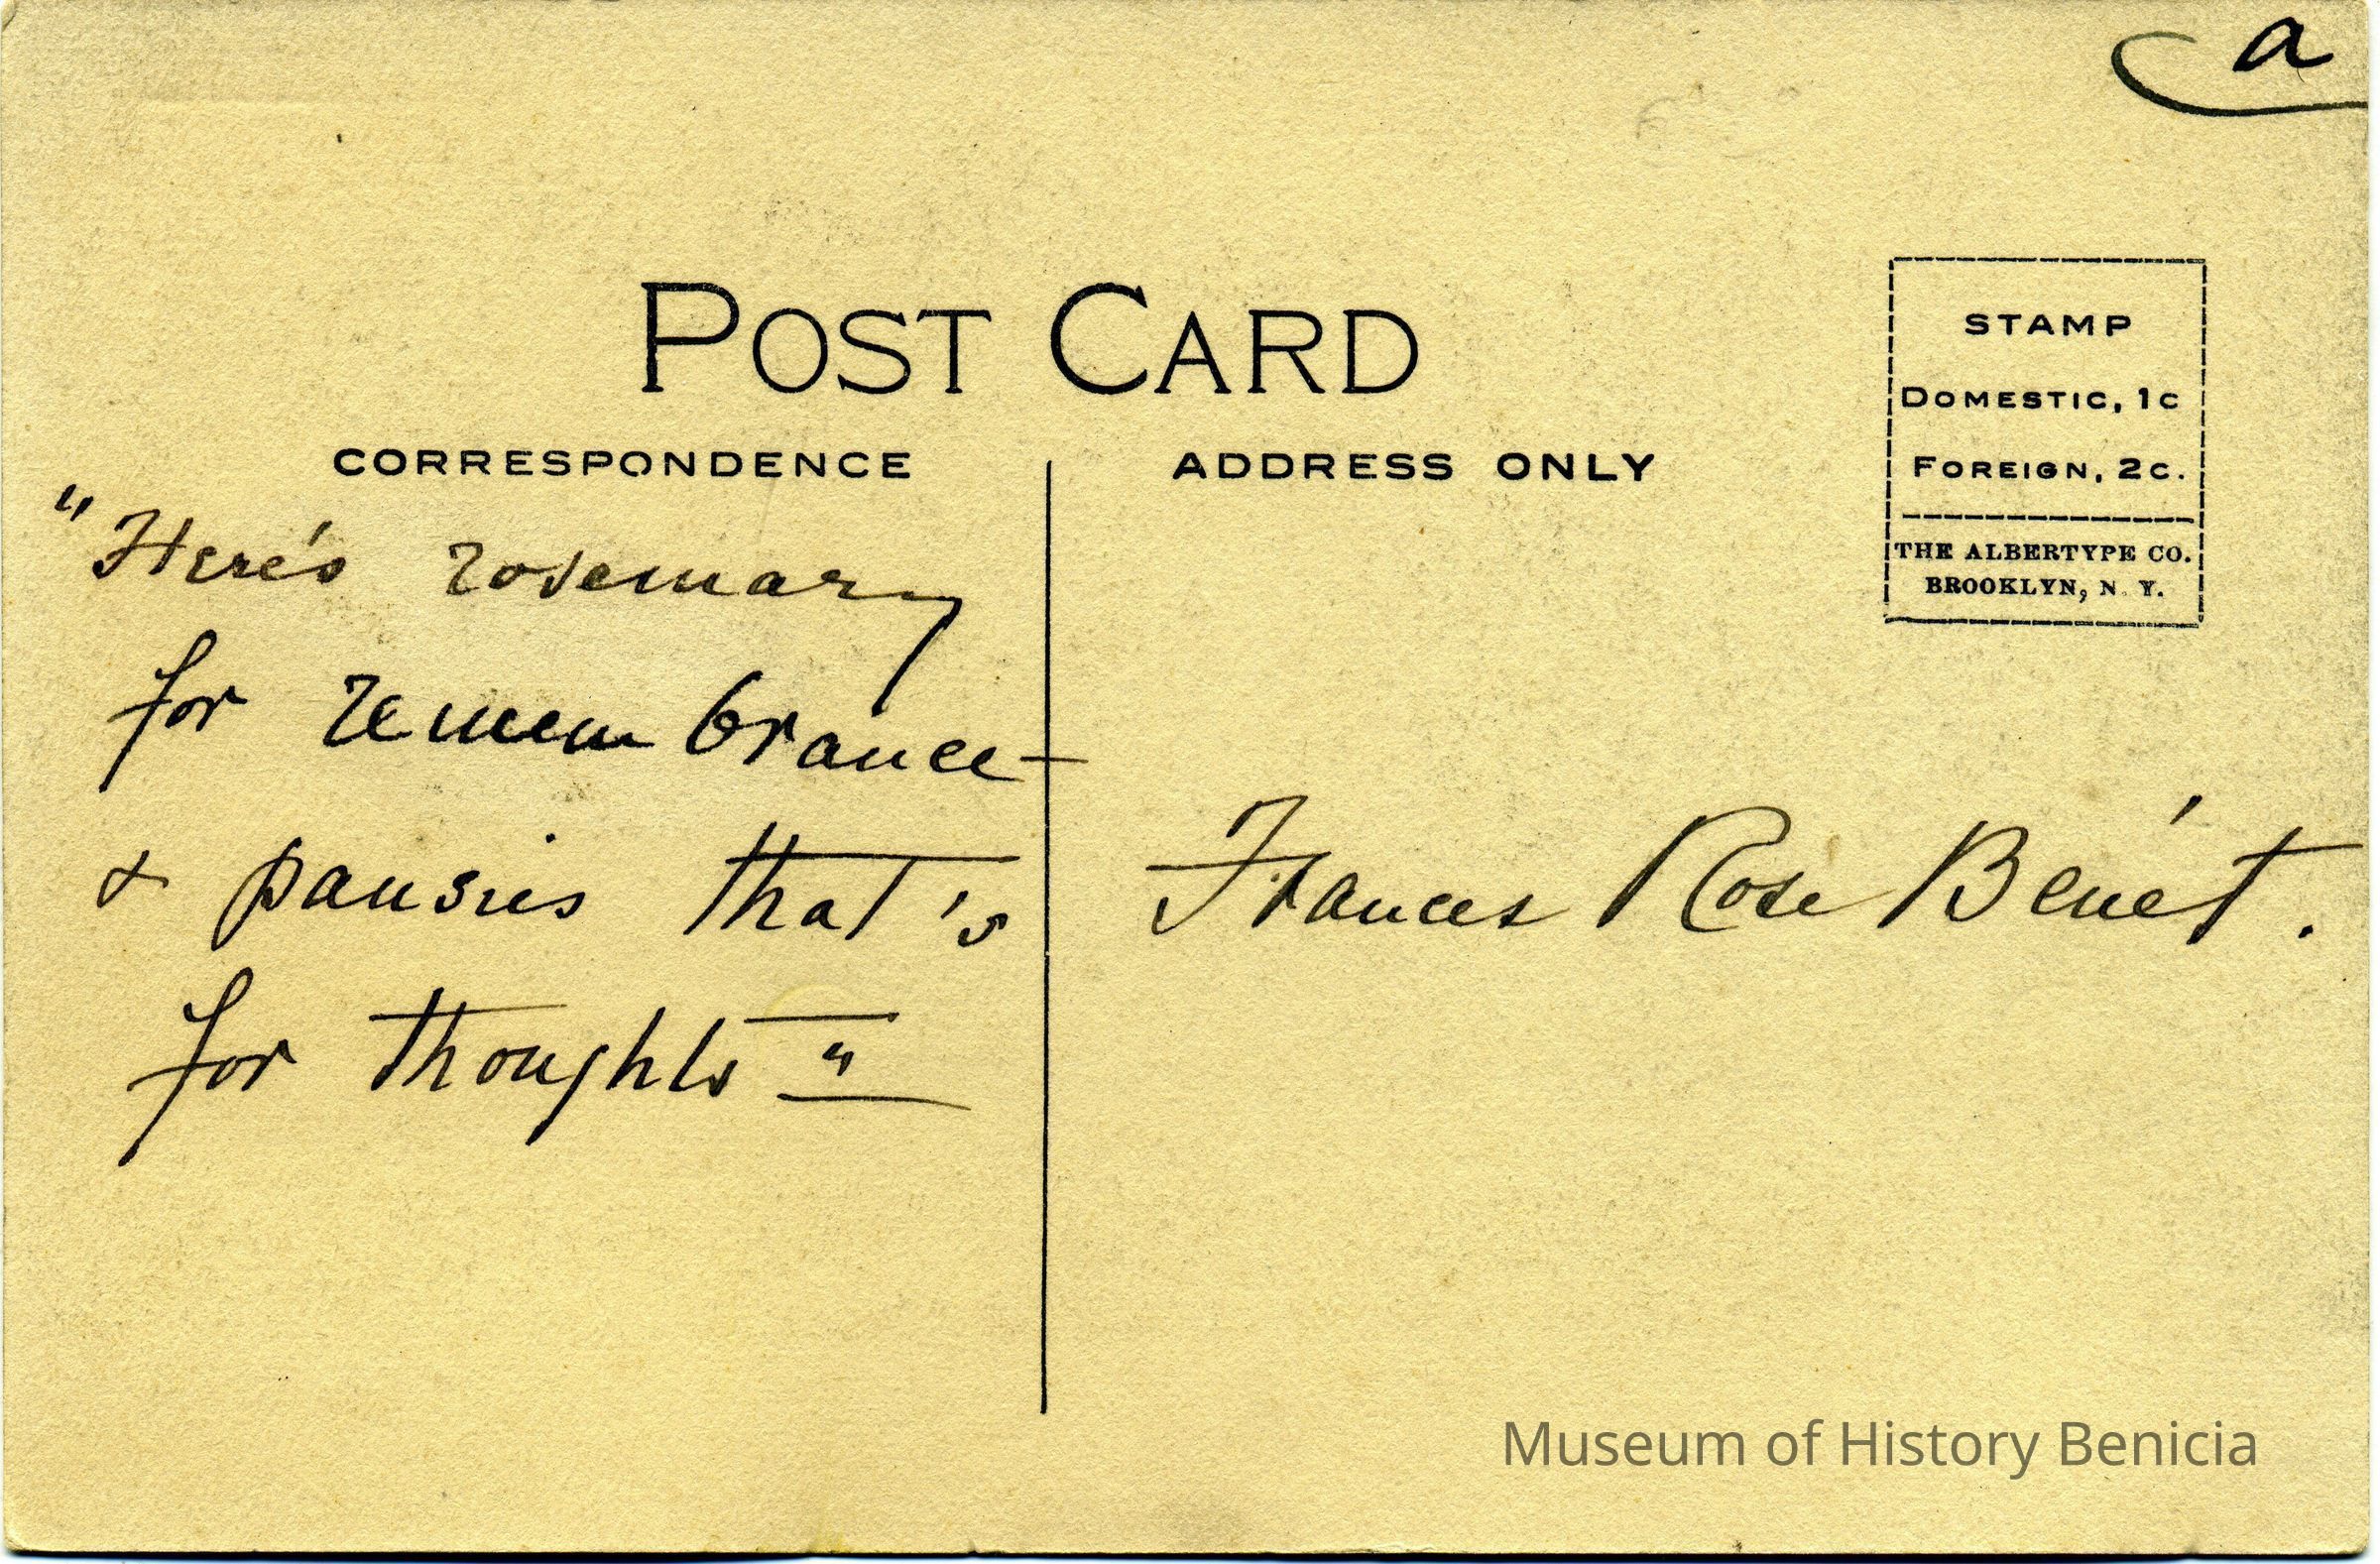 a
POST CARD
CORRESPONDENCE
ADDRESS ONLY
STAMP
DOMESTIC, 1c
FOREIGN, 2c.
THE ALBERTYPE CO.
BROOKLYN, N. Y.
"Here's rosemary
for remembrance -
& pansies that's
for thoughts"
Frances Rose Benét.
Museum of History Benicia